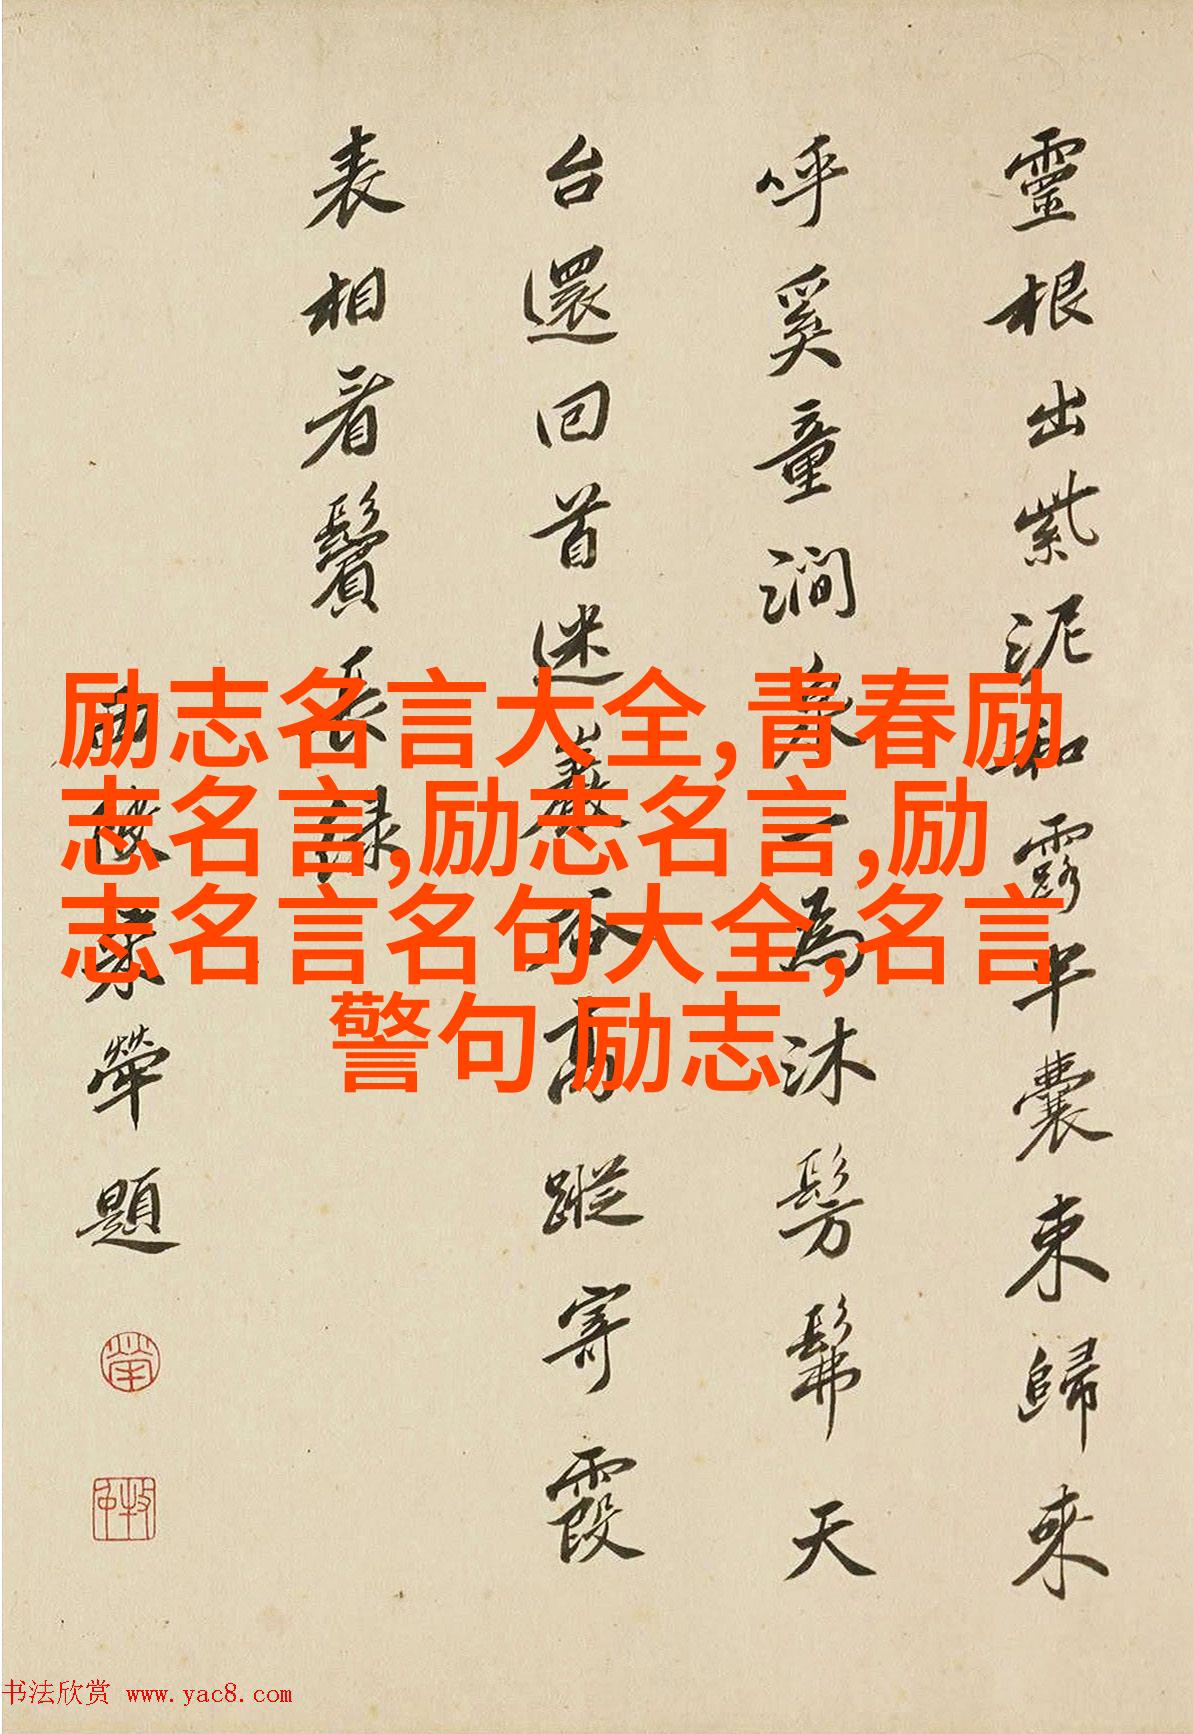 靈根出紫泥和露半囊束歸来
呼奚童澗泉一為沐髣髴天
台還回首迷巖谷高蹤寄霞
表相看鬢長緑
西陂宋犖題
犖
励志名言大全,青春励
志名言,励志名言,励
志名言名句大全,名言
警句 励志
书法欣赏 www.yac8.com